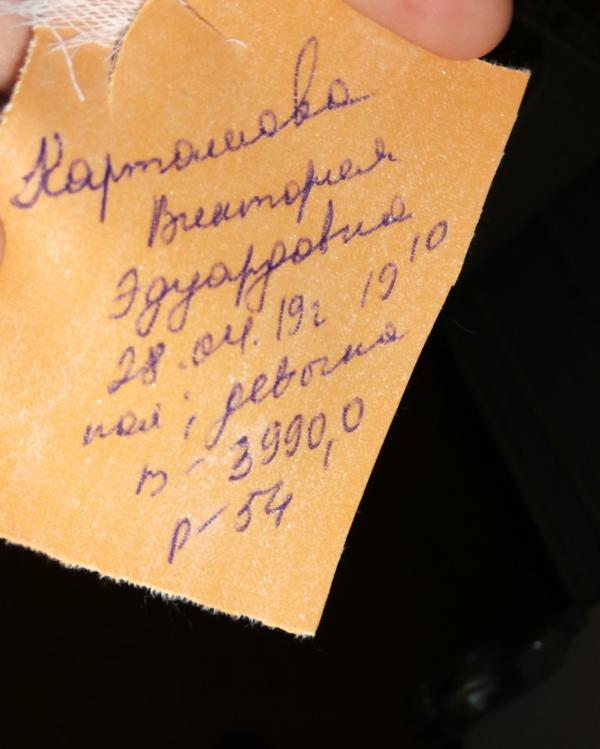 Карташова
Виктория
Эдуардовна
28.04.19г 19 10
пол; девочка
в - 3990,0
р - 54